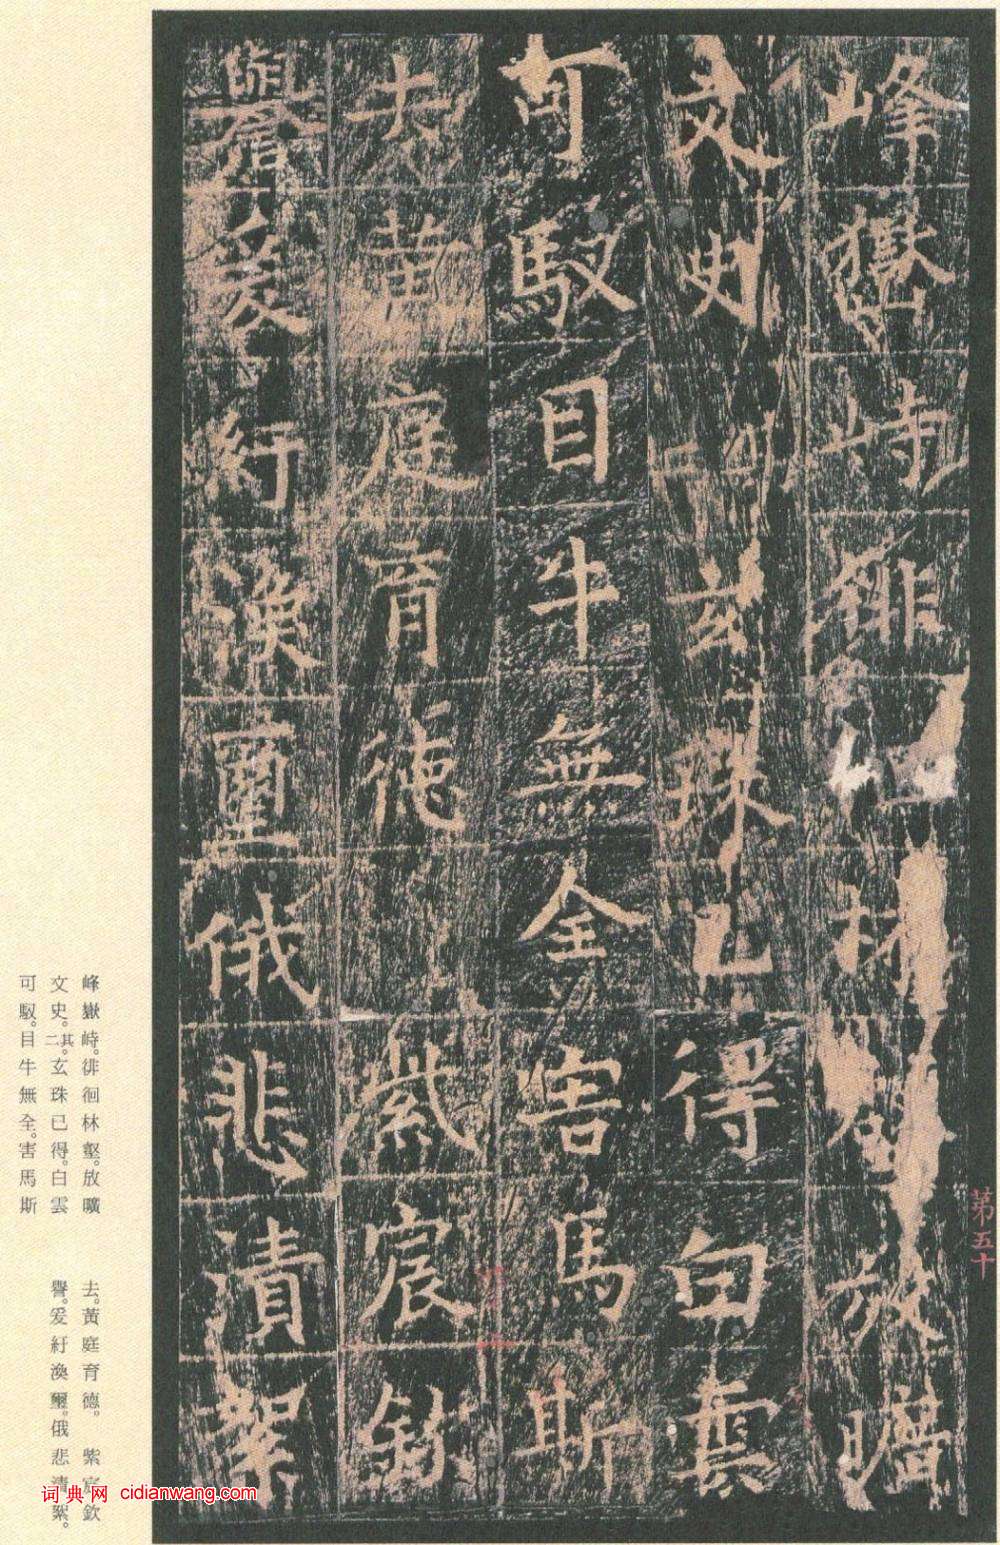 峰嶽峙徘林壑放曠
文史其二玄珠已得白雲
可馭目牛無全害馬斯
去黃庭育德 紫宸欽
譽爰紆渙璽俄悲漬絮
第五十
峰嶽峙。徘徊林壑。放曠
文史。其二。玄珠已得。白雲
可馭。目牛無全。害馬斯
去。黃庭育德。 紫宸欽
譽。爰紆渙璽。俄悲漬絮。
词典网 cidianwang.com